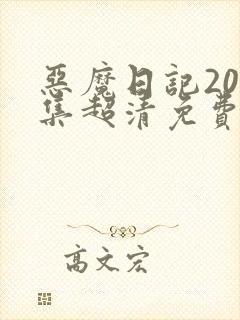 惡魔日記20
集超清免費
高文宏